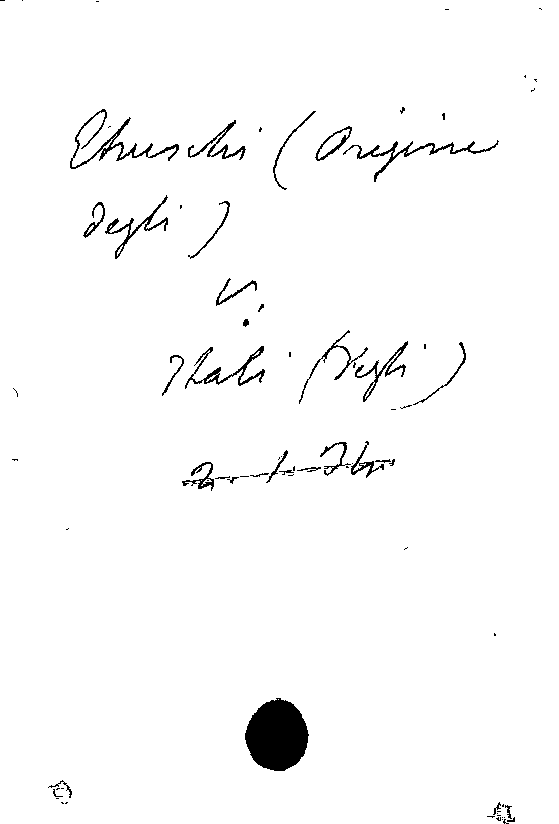 Etruschi (Origine
degli)
v.
Itali (degli)